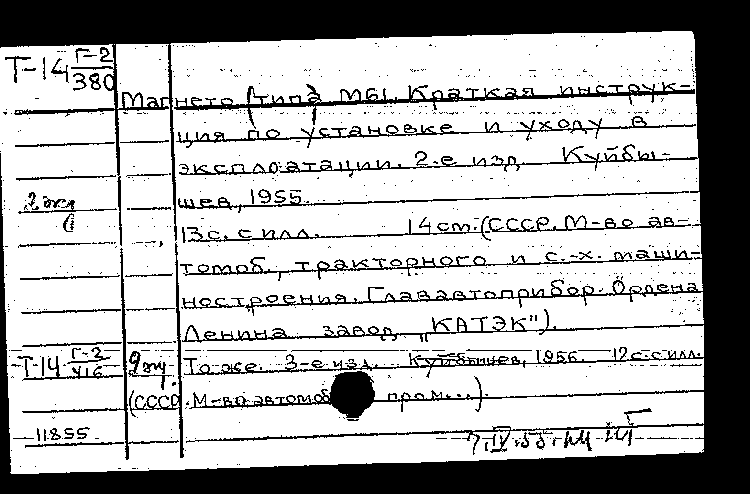 Т-14 Г-2/380
Магнето (типа) М61. Краткая инструк-
ция по установке и уходу в
эксплоатации. 2-е изд. Куйбы-
шев, 1955.
13 с. с илл. 14 см. (СССР. М-во ав-
томоб., тракторного и с.-х. маши-
ностроения. Глававтоприбор. Ордена
Ленина завод „КАТЭК").
Т-14 Г-2/416 То же. 3-е изд. Куйбышев, 1956. 12 с. с илл.
(СССР. М-во автомоб. пром...).
11855